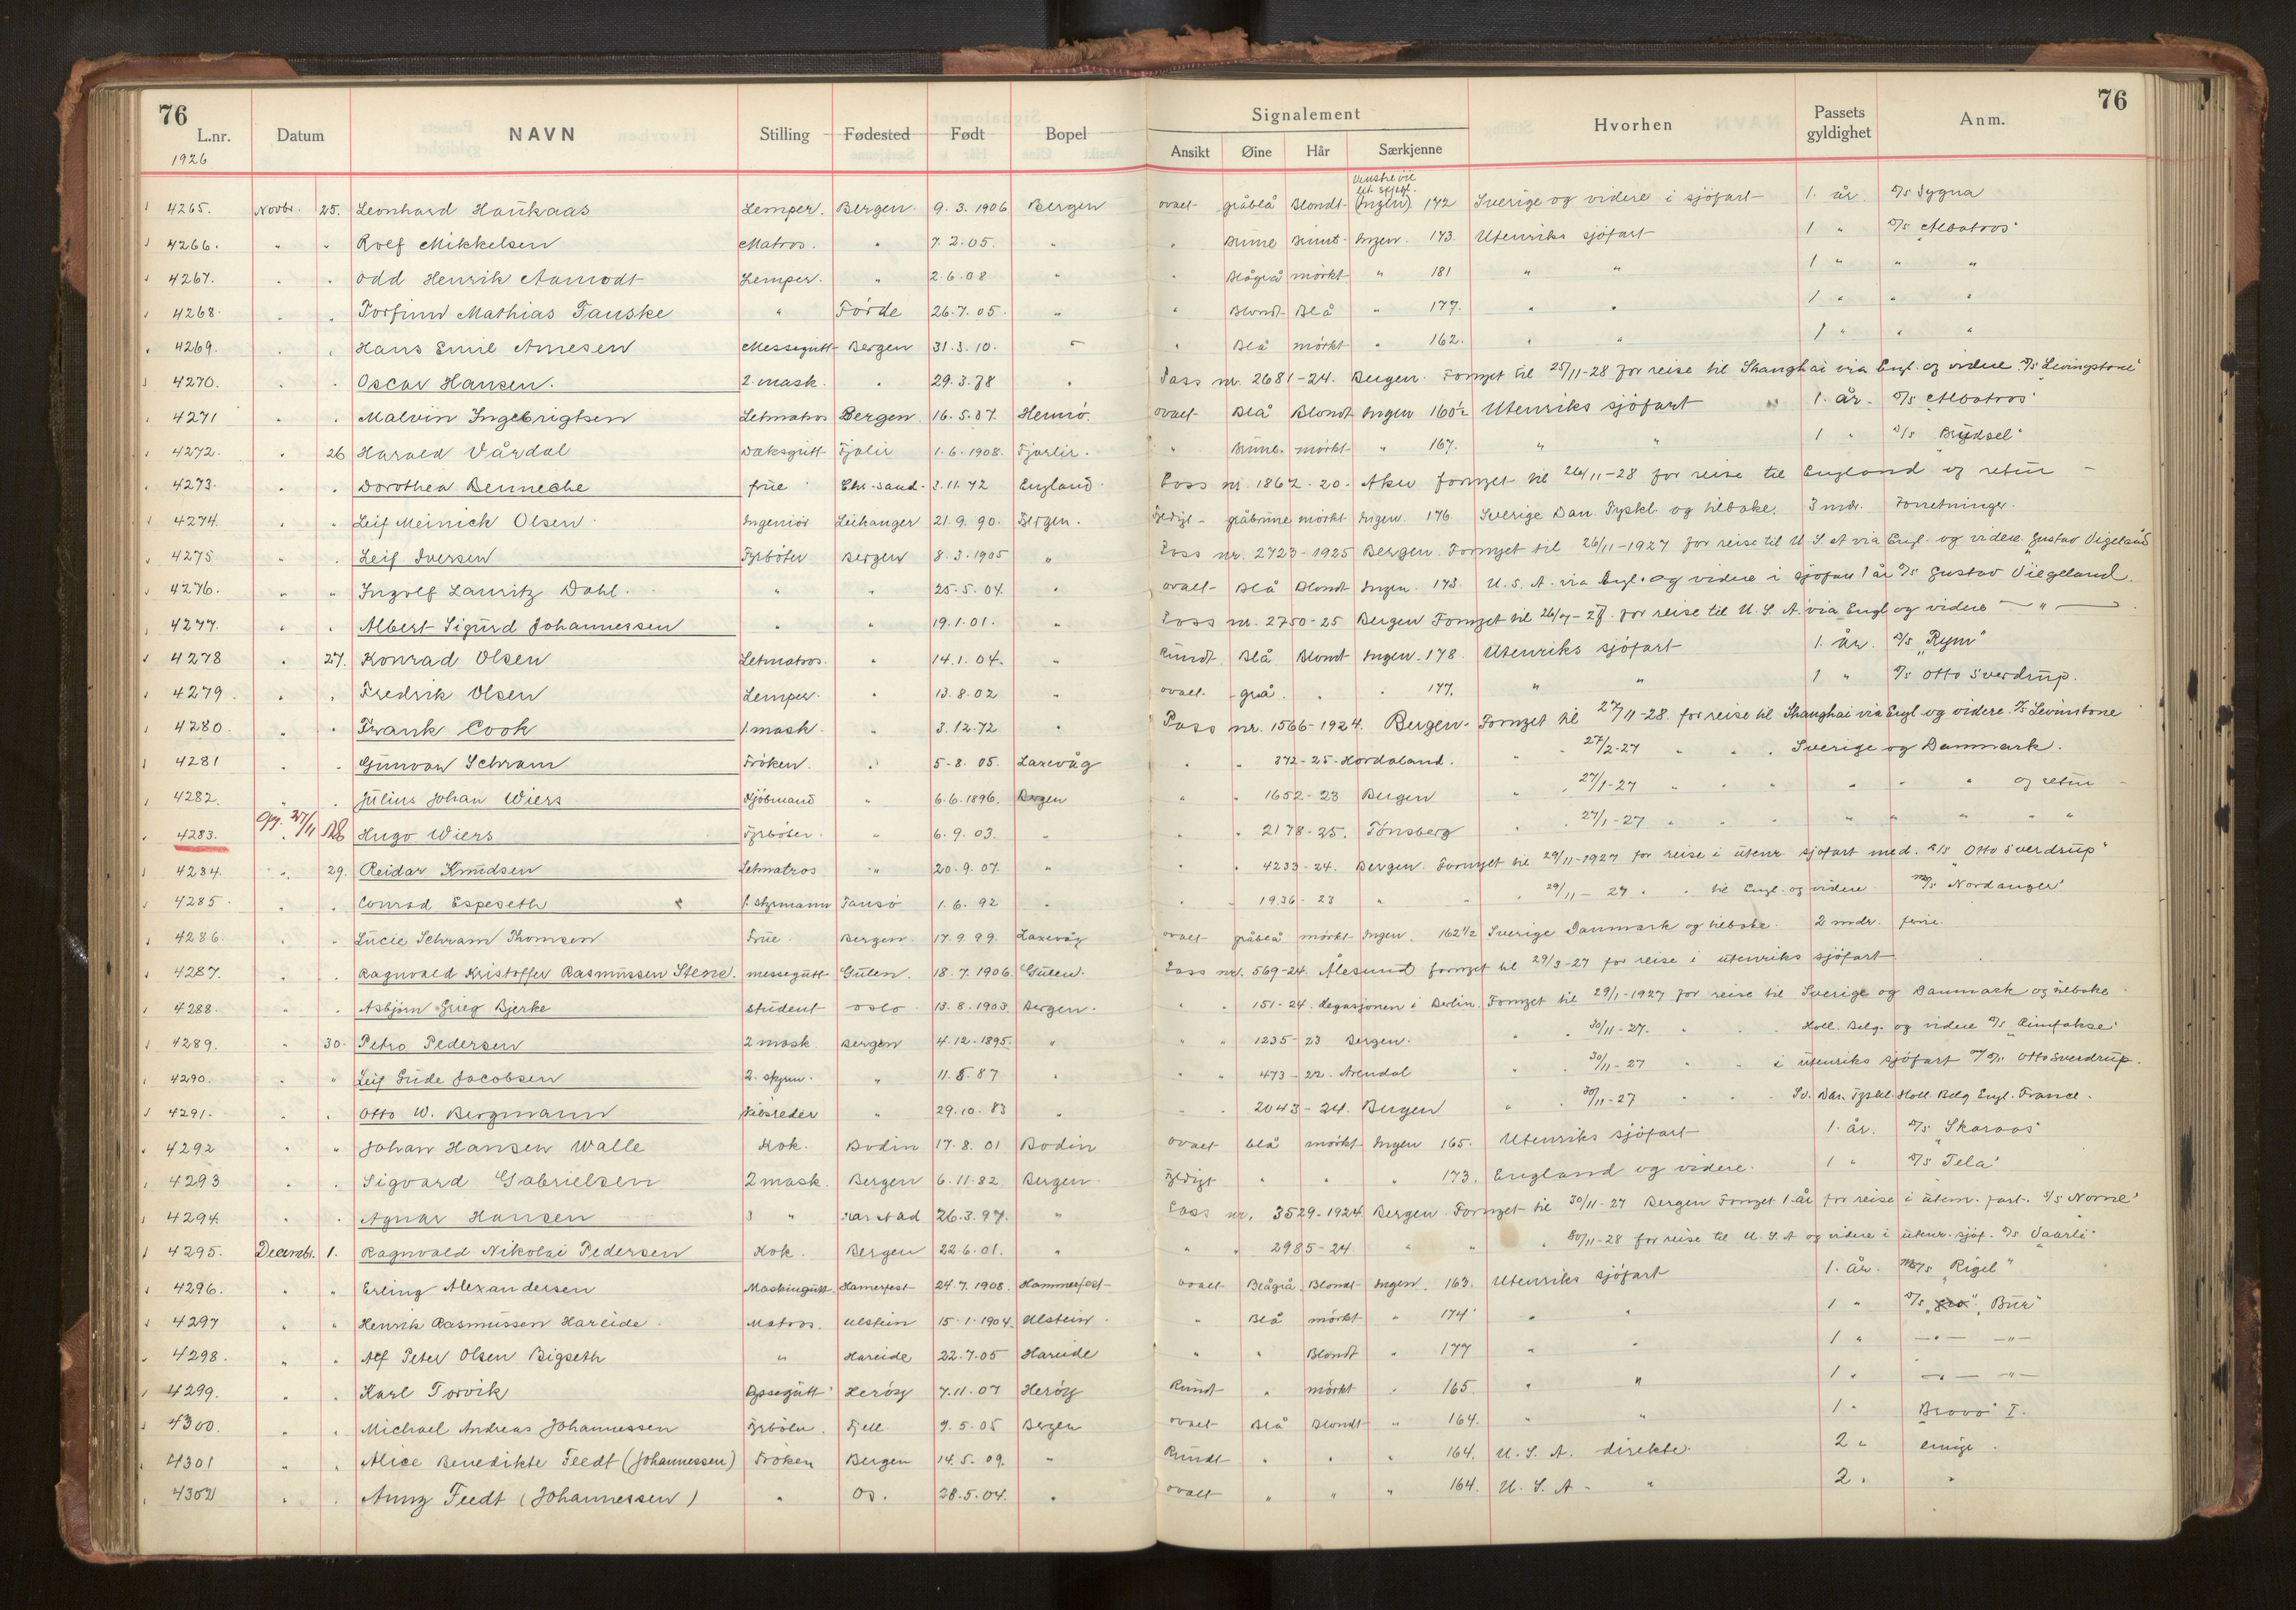 76
76
L.nr. Datum NAVN Stilling Fødested Født Bopel Signalement Hvorhen Passets gyldighet Anm.
1926 Ansikt Øine Hår Særkjenne
4265. Novbr. 25. Leonhard Haukaas Lemper. Bergen 9.3.1906 Bergen ovalt gråblå Blondt (Ingen) 172 Sverige og videre i sjöfart 1. år. D/S Sygna
4266. " " Rolf Mikkelsen Matros. " 7.2.05. " " Brune brunt Ingen. 173. Utenriks sjöfart 1 " D/S "Albatros"
4267. " " Odd Henrik Aamodt Lemper. " 2.6.08 " " Blågrå mörkt " 181 " " 1 " " "
4268. " " Torfinn Mathias Fauske " Förde 26.7.05. " " Blondt Blå " 177. " " 1 " " "
4269. " " Hans Emil Arnesen Messegutt Bergen 31.3.10. " " Blå mörkt " 162. " " 1 " " "
4270. " " Oscar Hansen. 2. mask. " 29.3.78 " Pass nr. 2681-24. Bergen. Fornyet til 25/11-28 for reise til Shanghai via Engl. og videre D/S "Levingstone"
4271 " " Malvin Ingebrigtsen Letmatros Bergen 16.5.07. Hennö. ovalt Blå Blondt Ingen 160½ Utenriks sjöfart 1. år. D/S Albatros"
4272. " 26 Harald Vårdal Daksgutt Fjaler 1.6.1908. Fjarlir. " Brune. mörkt " 167. " " 1 " D/S "Brüdsel"
4273. " " Dorothea Benneche frue Chr.sand 2.11.72 England Pass nr. 1867-20. Aker fornyet til 26/11-28 for reise til England og retur
4274. " " Leif Meinich Olsen Ingeniör Leikanger 21.9.90. Bergen. Fyldigt gråbrune mörkt Ingen. 176. Sverige Dan. Tyskl. og tilbake. 3 mdr. Forretninger.
4275 " " Leif Iversen Fyrböter Bergen 8.3.1905 " Pass nr. 2723-1925 Bergen. Fornyet til 26/11-1927 for reise til U.S.A via Engl. og videre. "Gustav Vigeland
4276. " " Ingolf Lauritz Dahl. " " 25.5.04. " ovalt Blå Blondt Ingen. 173. U.S.A. via Engl. og videre i sjöfart 1 år D/S Gustav Viegeland.
4277. " " Albert Sigurd Johannessen " " 19.1.01. " Pass nr. 2750-25 Bergen Fornyet til 26/4-27. for reise til U.S.A. via Engl og videre — " —
4278 " 27. Konrad Olsen Letmatros. " 14.1.04. " Rundt Blå Blondt Ingen. 178. Utenriks sjöfart 1. år. D/S "Rym"
4279. " " Fredrik Olsen Lemper. " 13.8.02 " ovalt grå. " " 177. " " 1 " D/S Otto Sverdrup.
4280. " " Frank Cook 1. mask. " 3.12.72 " Pass nr. 1566-1924. Bergen. Fornyet til 27/11-28. for reise til Shanghai via Engl og videre. D/S Levinstone
4281 " " Gunvor Schram Fröken. " 5.8.05. Laxevåg " " 372-25. Hordaland. " " 27/2-27 " " " Sverige og Danmark.
4282. " " Julius Johan Wiers Kjöbmand " 6.6.1896. Bergen " " 1652-23 Bergen " " 27/1-27 " " " " " og retur
4283. Opg. 27/11 128 Hugo Wiers Fyrböter. " 6.9.03. " " " 2178-25. Tönsberg " " 27/1-27 " " " " " "
4284. " 29. Reidar Knudsen Letmatros " 20.9.07. " " " 4233-24. Bergen. Fornyet til 29/11-1927 for reise i utenr. sjöfart med. D/S "Otto Sverdrup"
4285. " " Conrad Espeseth 1. styrmann Tansö 1.6.92 " " " 1936-23 " " " 29/11-27 " " til Engl. og videre. M/S Nordanger"
4286. " " Lucie Schram Thomsen Frue. Bergen 17.9.99. Laxevåg ovalt gråblå mörkt Ingen. 162½ Sverige Danmark og tilbake. 2 mdr. ferie.
4287. " " Ragnvald Kristoffer Rasmussen Stene. messegutt Gulen. 18.7.1906. Gulen. Pass nr. 569-24. Ålesund fornyet til 29/3-27 for reise i utenriks sjöfart
4288. " " Asbjörn Grieg Bjerke student Oslo 13.8.1903. Bergen. " " 151-24. Legasjonen i Berlin. Fornyet til 29/1-1927 for reise til Sverige og Danmark og tilbake.
4289. " 30. Petro Pedersen 2 mask. Bergen 4.12.1895. " " " 1235-23 Bergen. " " 30/11-27. " " " Holl. Belg. og videre D/S "Rimfakse"
4290. " " Leif Gude Jacobsen 2. styrm. " 11.5.87 " " " 473-22. Arendal " " 30/11-27 " " i utenriks sjöfart M/S Otto Sverdrup.
4291. " " Otto W. Bergmann Skibsreder " 29.10.83 " " " 2043-24. Bergen " " 30/11-27 " " " Sv. Dan. Tyskl. Holl. Belg Engl. France.
4292 " " Johan Hansen Walle Kok. Bodin 17.8.01 Bodin ovalt blå mörkt Ingen 165. Utenriks sjöfart 1. år. D/S "Skaraas"
4293 " " Sigvard Gabrielsen 2 mask. Bergen 6.11.82 Bergen. Fyldigt " " " 173. England og videre. 1 " D/S Tela"
4294. " " Agnar Hansen 3 " Harstad 26.3.97. " Pass nr. 3529-1924 Bergen Fornyet til 30/11-27 Bergen Fornyet 1.år for reise i utenr. fart. D/S Norne"
4295. Decembr. 1. Ragnvald Nikolai Pedersen Kok. Bergen 22.6.01. " " " 2985-24 " " " 30/11-28 for reise til U.S.A og videre i utenr. sjöf. D/S "Vaarli"
4296. " " Erling Alexandersen Maskingutt. Hamerfest 24.7.1908. Hammerfest ovalt Blågrå Blondt Ingen. 163. Utenriks sjöfart 1. år. M/S "Rigel"
4297 " " Henrik Rasmussen Hareide. Matros. Ulstein 15.1.1904. Ulstein. " Blå mörkt " 174 " " 1 " D/S "Bur"
4298. " " Alf Peter Olsen Bigseth " Hareide 22.7.05 Hareide " " Blondt " 177 " " 1 " — " — — " —
4299. " " Karl Torvik Byssegutt Heröy 7.11.07 Heröy Rundt " mörkt " 165. " " 1 " — " — — " —
4300. " " Michael Andreas Johannessen Fyrböter. Fjell. 9.5.05 Bergen ovalt Blå Blondt " 164. " " 1 " Bravo I.
4301 " " Alice Benedikte Feedt (Johannessen) Fröken Bergen 14.5.09. " Rundt " " " 164. U.S.A. direkte. 2 " emigr.
4302 " " Anny Feedt (Johannessen) " Os. 28.5.04. " ovalt " " " 164. U.S.A. " 2 " "